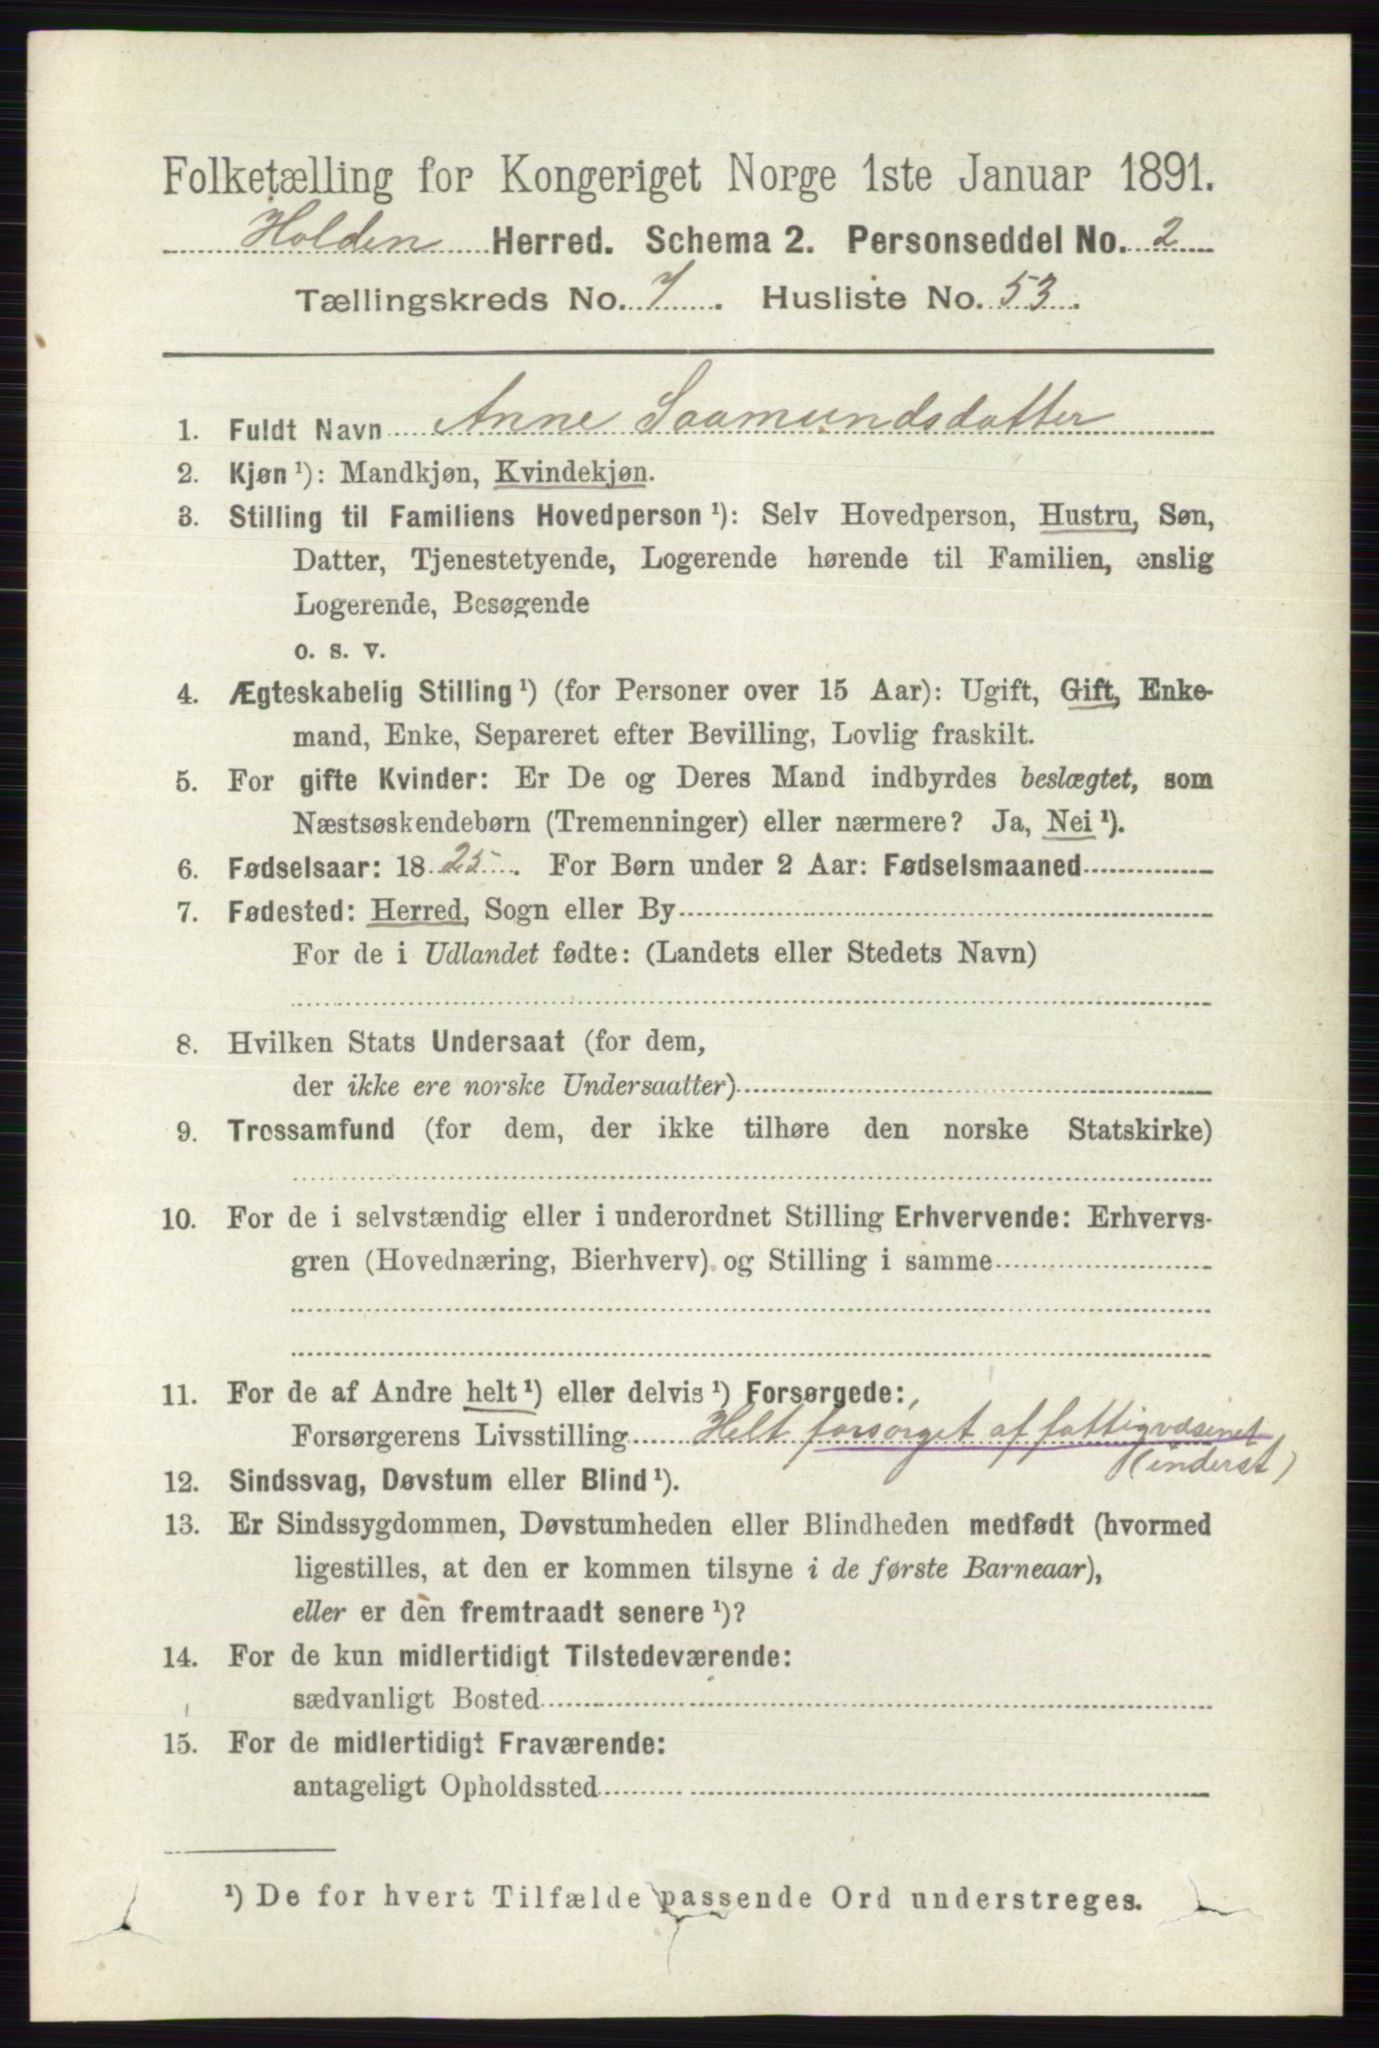 Folketælling for Kongeriget Norge 1ste Januar 1891.
Holden Herred. Schema 2. Personseddel No. 2
Tællingskreds No. 7. Husliste No. 53.
1. Fuldt Navn Anne Saamundsdatter
2. Kjøn ¹): Mandkjøn, Kvindekjøn.
3. Stilling til Familiens Hovedperson ¹): Selv Hovedperson, Hustru, Søn,
Datter, Tjenestetyende, Logerende hørende til Familien, enslig
Logerende, Besøgende
o. s. v.
4. Ægteskabelig Stilling ¹) (for Personer over 15 Aar): Ugift, Gift, Enke-
mand, Enke, Separeret efter Bevilling, Lovlig fraskilt.
5. For gifte Kvinder: Er De og Deres Mand indbyrdes beslægtet, som
Næstsøskendebørn (Tremenninger) eller nærmere? Ja, Nei ¹).
6. Fødselsaar: 1825. For Børn under 2 Aar: Fødselsmaaned
7. Fødested: Herred, Sogn eller By
For de i Udlandet fødte: (Landets eller Stedets Navn)
8. Hvilken Stats Undersaat (for dem,
der ikke ere norske Undersaatter)
9. Trossamfund (for dem, der ikke tilhøre den norske Statskirke)
10. For de i selvstændig eller i underordnet Stilling Erhvervende: Erhvervs-
gren (Hovednæring, Bierhverv) og Stilling i samme
11. For de af Andre helt ¹) eller delvis ¹) Forsørgede:
Forsørgerens Livsstilling Helt forsørget af fattigvæsenet
(inderst)
12. Sindssvag, Døvstum eller Blind ¹).
13. Er Sindssygdommen, Døvstumheden eller Blindheden medfødt (hvormed
ligestilles, at den er kommen tilsyne i de første Barneaar),
eller er den fremtraadt senere ¹)?
14. For de kun midlertidigt Tilstedeværende:
sædvanligt Bosted
15. For de midlertidigt Fraværende:
antageligt Opholdssted
¹) De for hvert Tilfælde passende Ord understreges.